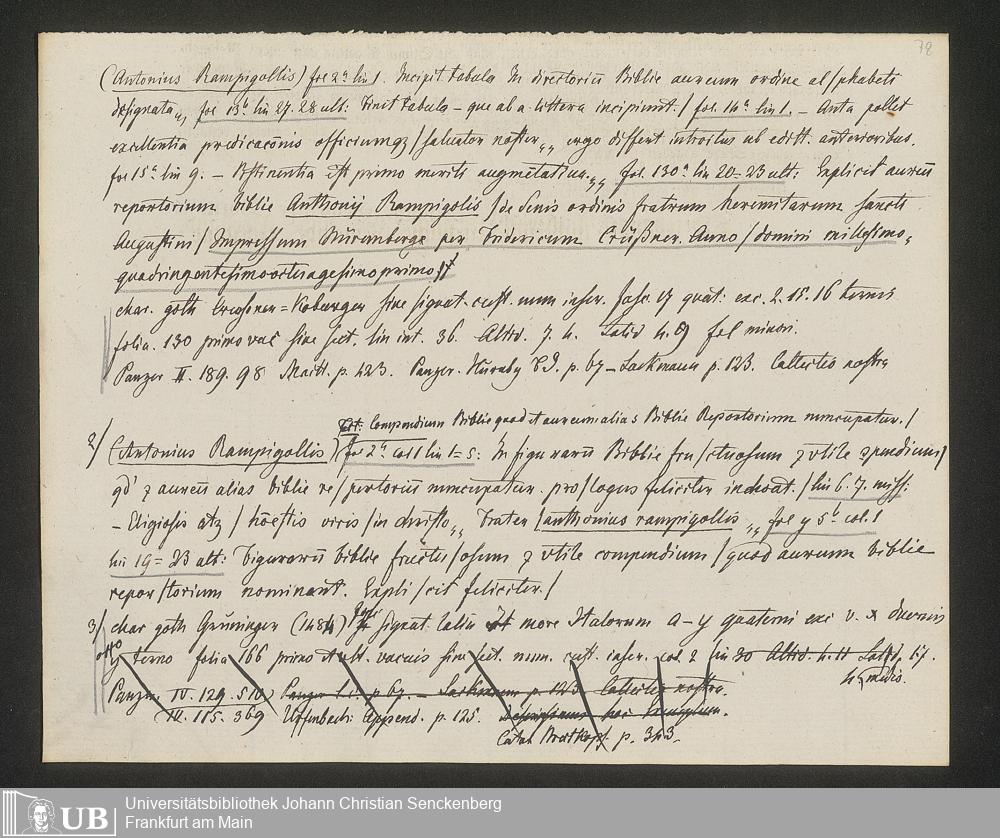 78
(Antonius Rampigollis) fol 2ª lin 1. Incipit tabula In directoriū Biblie aureum ordine al/phabeti
designata,, fol 13ᵇ lin 27.28 ult: Finit tabula – que ab a littera incipiunt./ fol. 14ª lin 1. – Anta pollet
excellentia predicacōnis officiumqz/saluator noster,, ergo differt introitus ab edit. anterioribus.
fol 15ª lin 9. – Abstinentia Est primo meriti augmētatiua.,, fol. 130ª lin 20=23 ult: Explicit aureū
reportorium biblie Anthonij Rampigolis /de Senis ordinis fratrum heremitarum sancti
Augustini/Impressum Nüremberge per Fridericum Creüßner. Anno/domini millesimo,
quadringentesimooctuagesimoprimo/
char. goth Creussner=Koburger sine signat. cust. num inser. 17 quat: exc. 2.15.16 ternis
folia. 130 primo vac sine sect. lin int. 36. Altid. 7.4. Latid 4.9 fol minori.
Panzer II. 189. 98 Maitt. p. 423. Panzer. Nurnbg p. 67 – Sackmann p. 123. Collectio nostra
Tit: Compendium Biblie quod et aureum alias Biblie Reportorium nuncupatur./
2/ (Antonius Rampigollis) fol 2ª col 1 lin 1=5: In figurarū Biblie fru/ctuosum z vtile 9pendium/
qd' z aureū alias biblie re/pertoriū nuncupatur. pro/logus feliciter inchoat./ lin 6.7. miss:
– Eligiosis atz/hōestis viris/in christo,, Frater/anthonius rampigollis,, fol y 5ᵇ col. 1
lin 19=23 ult: Figurarū biblie fructu/osum z vtile compendium/quod aureum biblie
repor/torium nominant. Expli/cit feliciter./
3/ char goth Grüninger (1484) signat. latin more Italorum a–y quaterni exc v. x duernis
y terno folia 166 primo et ult. vacuis sine sect. num. cust. inser. col. 2 lin 30 Altid. 4.11 Latid. 17.
Panzer. IV. 129. 510 Panzer l.c. p 67. – Sackmann p. 123 Collectio nostra.
IV. 115. 369 Uffenbach: Append. p. 125.
Catal. p. 343.
UB
Universitätsbibliothek Johann Christian Senckenberg
Frankfurt am Main